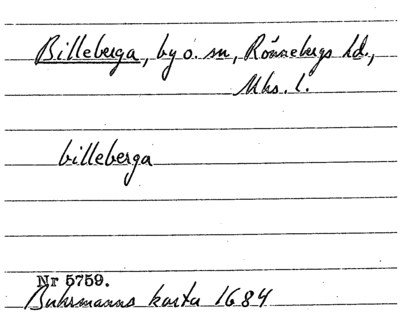 Billeberga, by o. sn, Rönnebergs hd.,
Mhs. l.
billeberga
Nr 5759.
Buhrmanns karta 1684